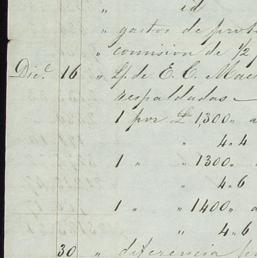 " id
" gastos de prot
" comisión de 1/2 p
Dicе. 16 " L/ de E. C. Mac
respaldadas
1 por £ 1,300 " a
" 4.4
1 " " 1300 " a
" 4.6
1 " " 1400 " a
" 4.6
30 " diferencia